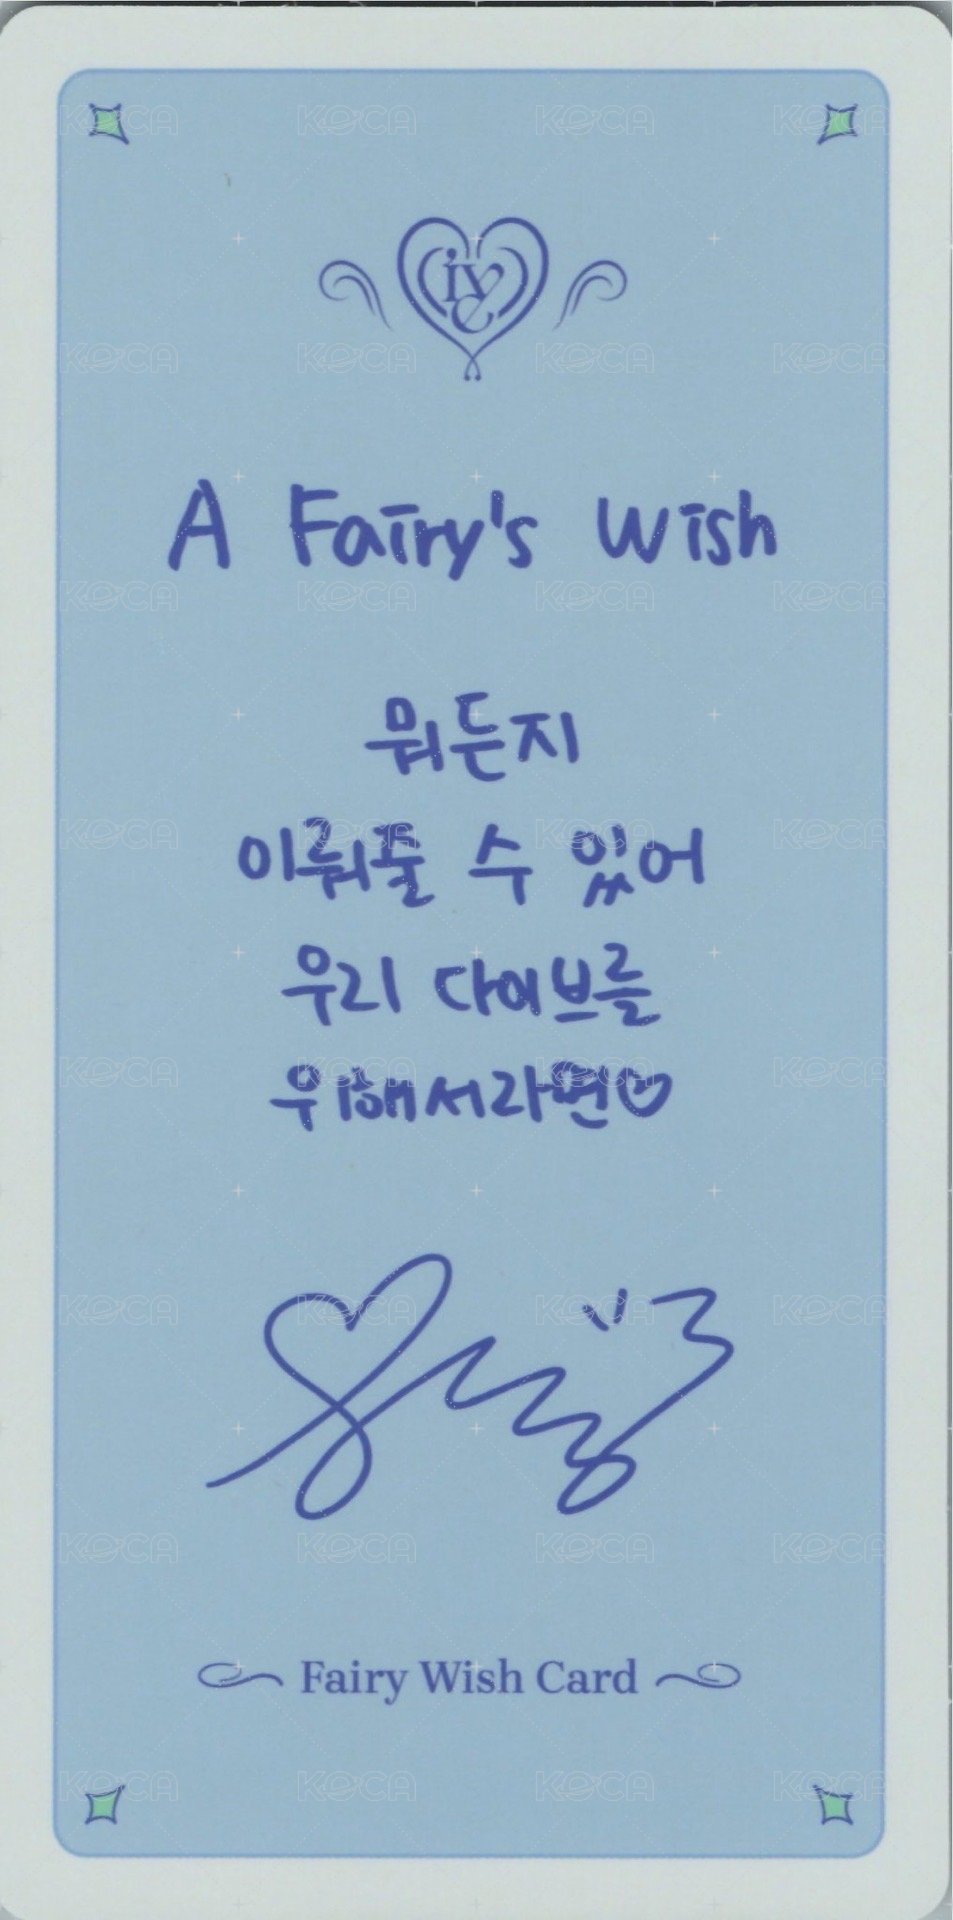 ive
A Fairy's Wish
뭐든지
이뤄줄 수 있어
우리 다이브를
위해서라면♡
Fairy Wish Card
KOCA